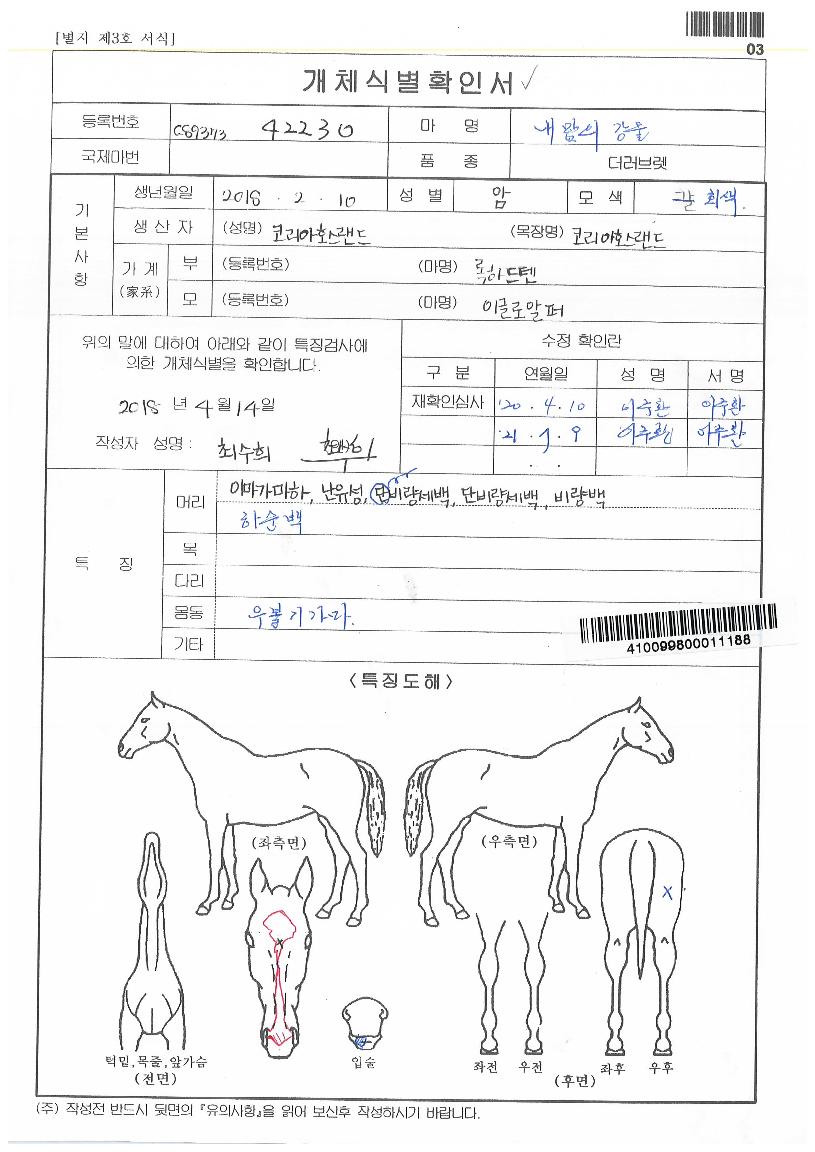 [별지 제3호 서식]
03
개체식별확인서✓
등록번호 C89373 42230 마 명 내 맘의 강물
국제마번 품 종 더러브렛
기본사항 생년월일 2018 . 2 . 10 성 별 암 모 색 회색.
생 산 자 (성명) 코리아호스랜드 (목장명) 코리아호스랜드
가 계 (家系) 부 (등록번호) (마명) 록하드텐
모 (등록번호) (마명) 이글로알퍼
위의 말에 대하여 아래와 같이 특징검사에
의한 개체식별을 확인합니다.
2018 년 4 월 14 일
작성자 성명 : 최수희
수정 확인란
구 분 연월일 성 명 서 명
재확인심사 '20 . 4 . 10 이주환 이주환
'21 . 9 이주환 이주환
. .
특 징
머리 이마가미하, 난유성, 단비량세백, 단비량세백, 비량백
하순백
목
다리
몸통 우볼기가마.
기타
410099800011188
<특징도해>
(좌측면) (우측면)
턱밑,목줄,앞가슴
(전면)
입술
좌전 우전 좌후 우후
(후면)
(주) 작성전 반드시 뒷면의 『유의사항』을 읽어 보신후 작성하시기 바랍니다.